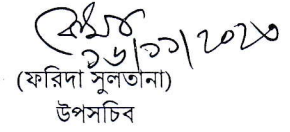 ১৬/১১/২০২০
(ফরিদা সুলতানা)
উপসচিব